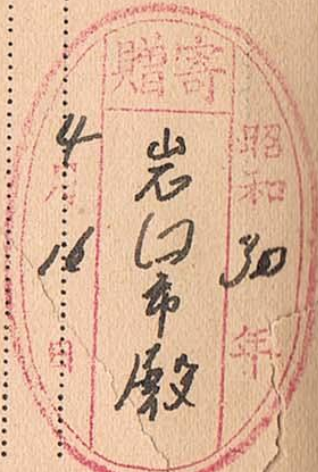 寄贈
昭和30年
岩口市殿
4月16日